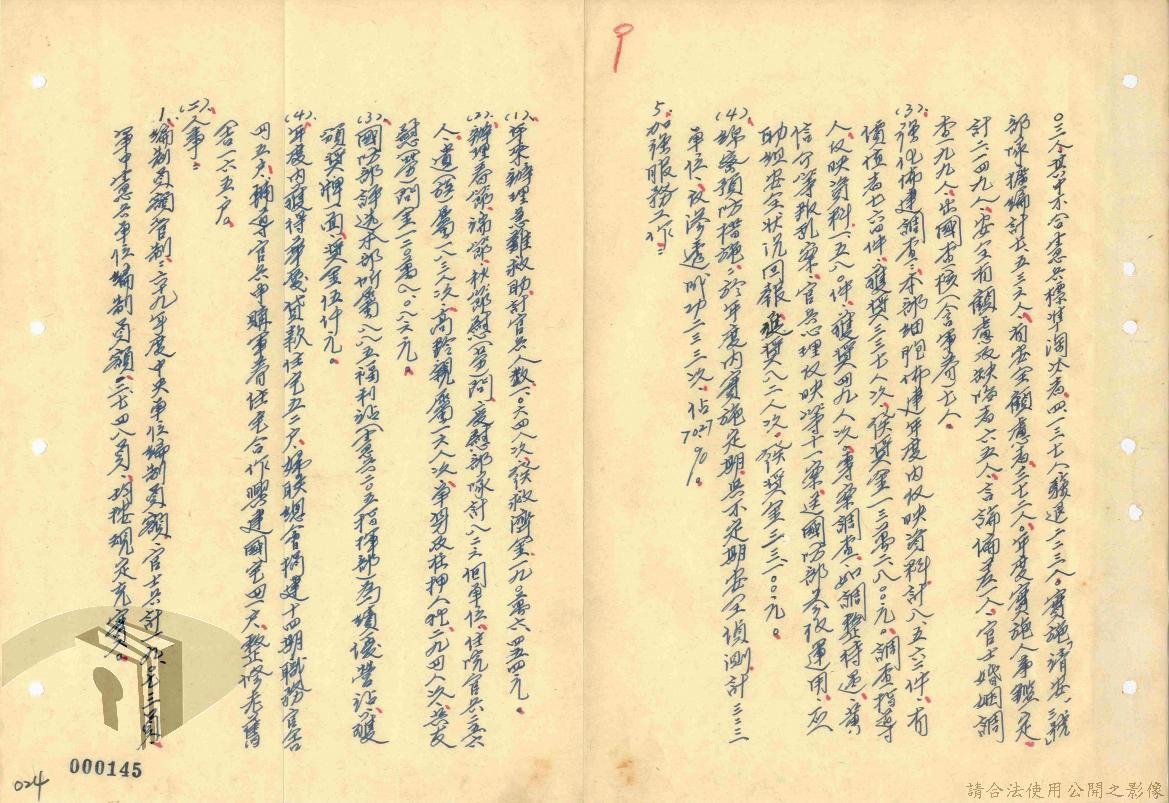 9
〇三人,其中不合憲兵標準淘汰者四一三七人,驗退二二三人。實施「請安一號」
部隊擴編計七、五三六人,有安全顧慮者三七二人。年度實施人事鑑定
計六二四九人,安全有顧慮及缺陷者六五人,言論偏差一人,官士婚姻調
查九九人,出國查核(含軍眷)七人。
(3)、強化佈建調查:本部細胞佈建年度內反映資料計八、五六三件,有
價值者七六四件,獲獎三三七人次,發獎金一三萬二八〇〇元。調查指導
人反映資料一五八〇件,獲獎四九人次。專案調查,如調整待遇、黃
信介等叛亂案,官兵心理反映等十一案,送國防部參後運用,反
助規安全狀況回報,獲獎八二人次,發獎金三三一〇〇元。
(4)、綿密預防措施:於年度內實施定期與不定期安全偵測計三三三
單位,被滲透成功二三三次,佔70.27%。
5.加強服務工作:
(1)、年來辦理急難救助計官兵人數一、〇六四人次,發救濟金一九〇萬六四五四元。
(2)、辦理春節、端節、秋節慰(勞)問,慶慰部隊計八二三個單位,住院官兵三五六
人,遺族(屬)一八三人次,高齡親屬一六人次,軍羈及在押人犯二九四人次,共支
慰(勞)問金一二三萬八〇八六元。
(3)、國防部評選本部所屬八八五福利站(憲兵二〇五指揮部)為績優營站,獲
頒獎牌一面,獎金伍仟元。
(4)、年度內獲得華夏貸款住宅五二戶,婦聯總會捐建十四期職務官舍
四五戶,輔導官兵申購軍眷住宅合作興建國宅四一戶,整修老舊
舍一六五戶。
(二)、人事:
1.編制員額管制:六十九年度中央單位編制員額,官士兵計一九〇七三員
軍中憲兵單位編制員額二七四八員,均按規定充實。
000145
024
請合法使用公開之影像